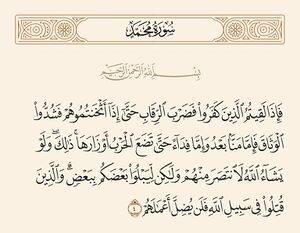 سُورَةُ مُحَمَّدٍ
بِسْمِ اللَّهِ الرَّحْمَٰنِ الرَّحِيمِ
فَإِذَا لَقِيتُمُ ٱلَّذِينَ كَفَرُوا۟ فَضَرْبَ ٱلرِّقَابِ حَتَّىٰٓ إِذَآ أَثْخَنتُمُوهُمْ فَشُدُّوا۟
ٱلْوَثَاقَ فَإِمَّا مَنًّۢا بَعْدُ وَإِمَّا فِدَآءً حَتَّىٰ تَضَعَ ٱلْحَرْبُ أَوْزَارَهَا ۚ ذَٰلِكَ ۖ وَلَوْ
يَشَآءُ ٱللَّهُ لَٱنتَصَرَ مِنْهُمْ وَلَٰكِن لِّيَبْلُوَا۟ بَعْضَكُم بِبَعْضٍ ۗ وَٱلَّذِينَ
قُتِلُوا۟ فِى سَبِيلِ ٱللَّهِ فَلَن يُضِلَّ أَعْمَٰلَهُمْ ٤